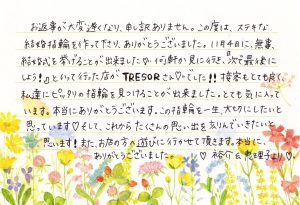 お返事が大変遅くなり、申し訳ありません。この度は、ステキな
結婚指輪を作って下さり、ありがとうございました。11月4日に、無事、
結婚式を挙げることが出来ました♡何軒か見に行き、「次で最後に
しよう!」といって行った店がTRESORさん♡でした!!接客もとても良く
私達にピッタリの指輪を見つけることが出来ました。とても気に入って
います。本当にありがとうございます。この指輪を一生、大切にしたいと
思っています♡そして、これからたくさんの思い出を刻んでいきたいと
思います!また、お店の方へ遊びに行かせて頂きます。本当に、
ありがとうございました。♡裕介&恵理子より♡